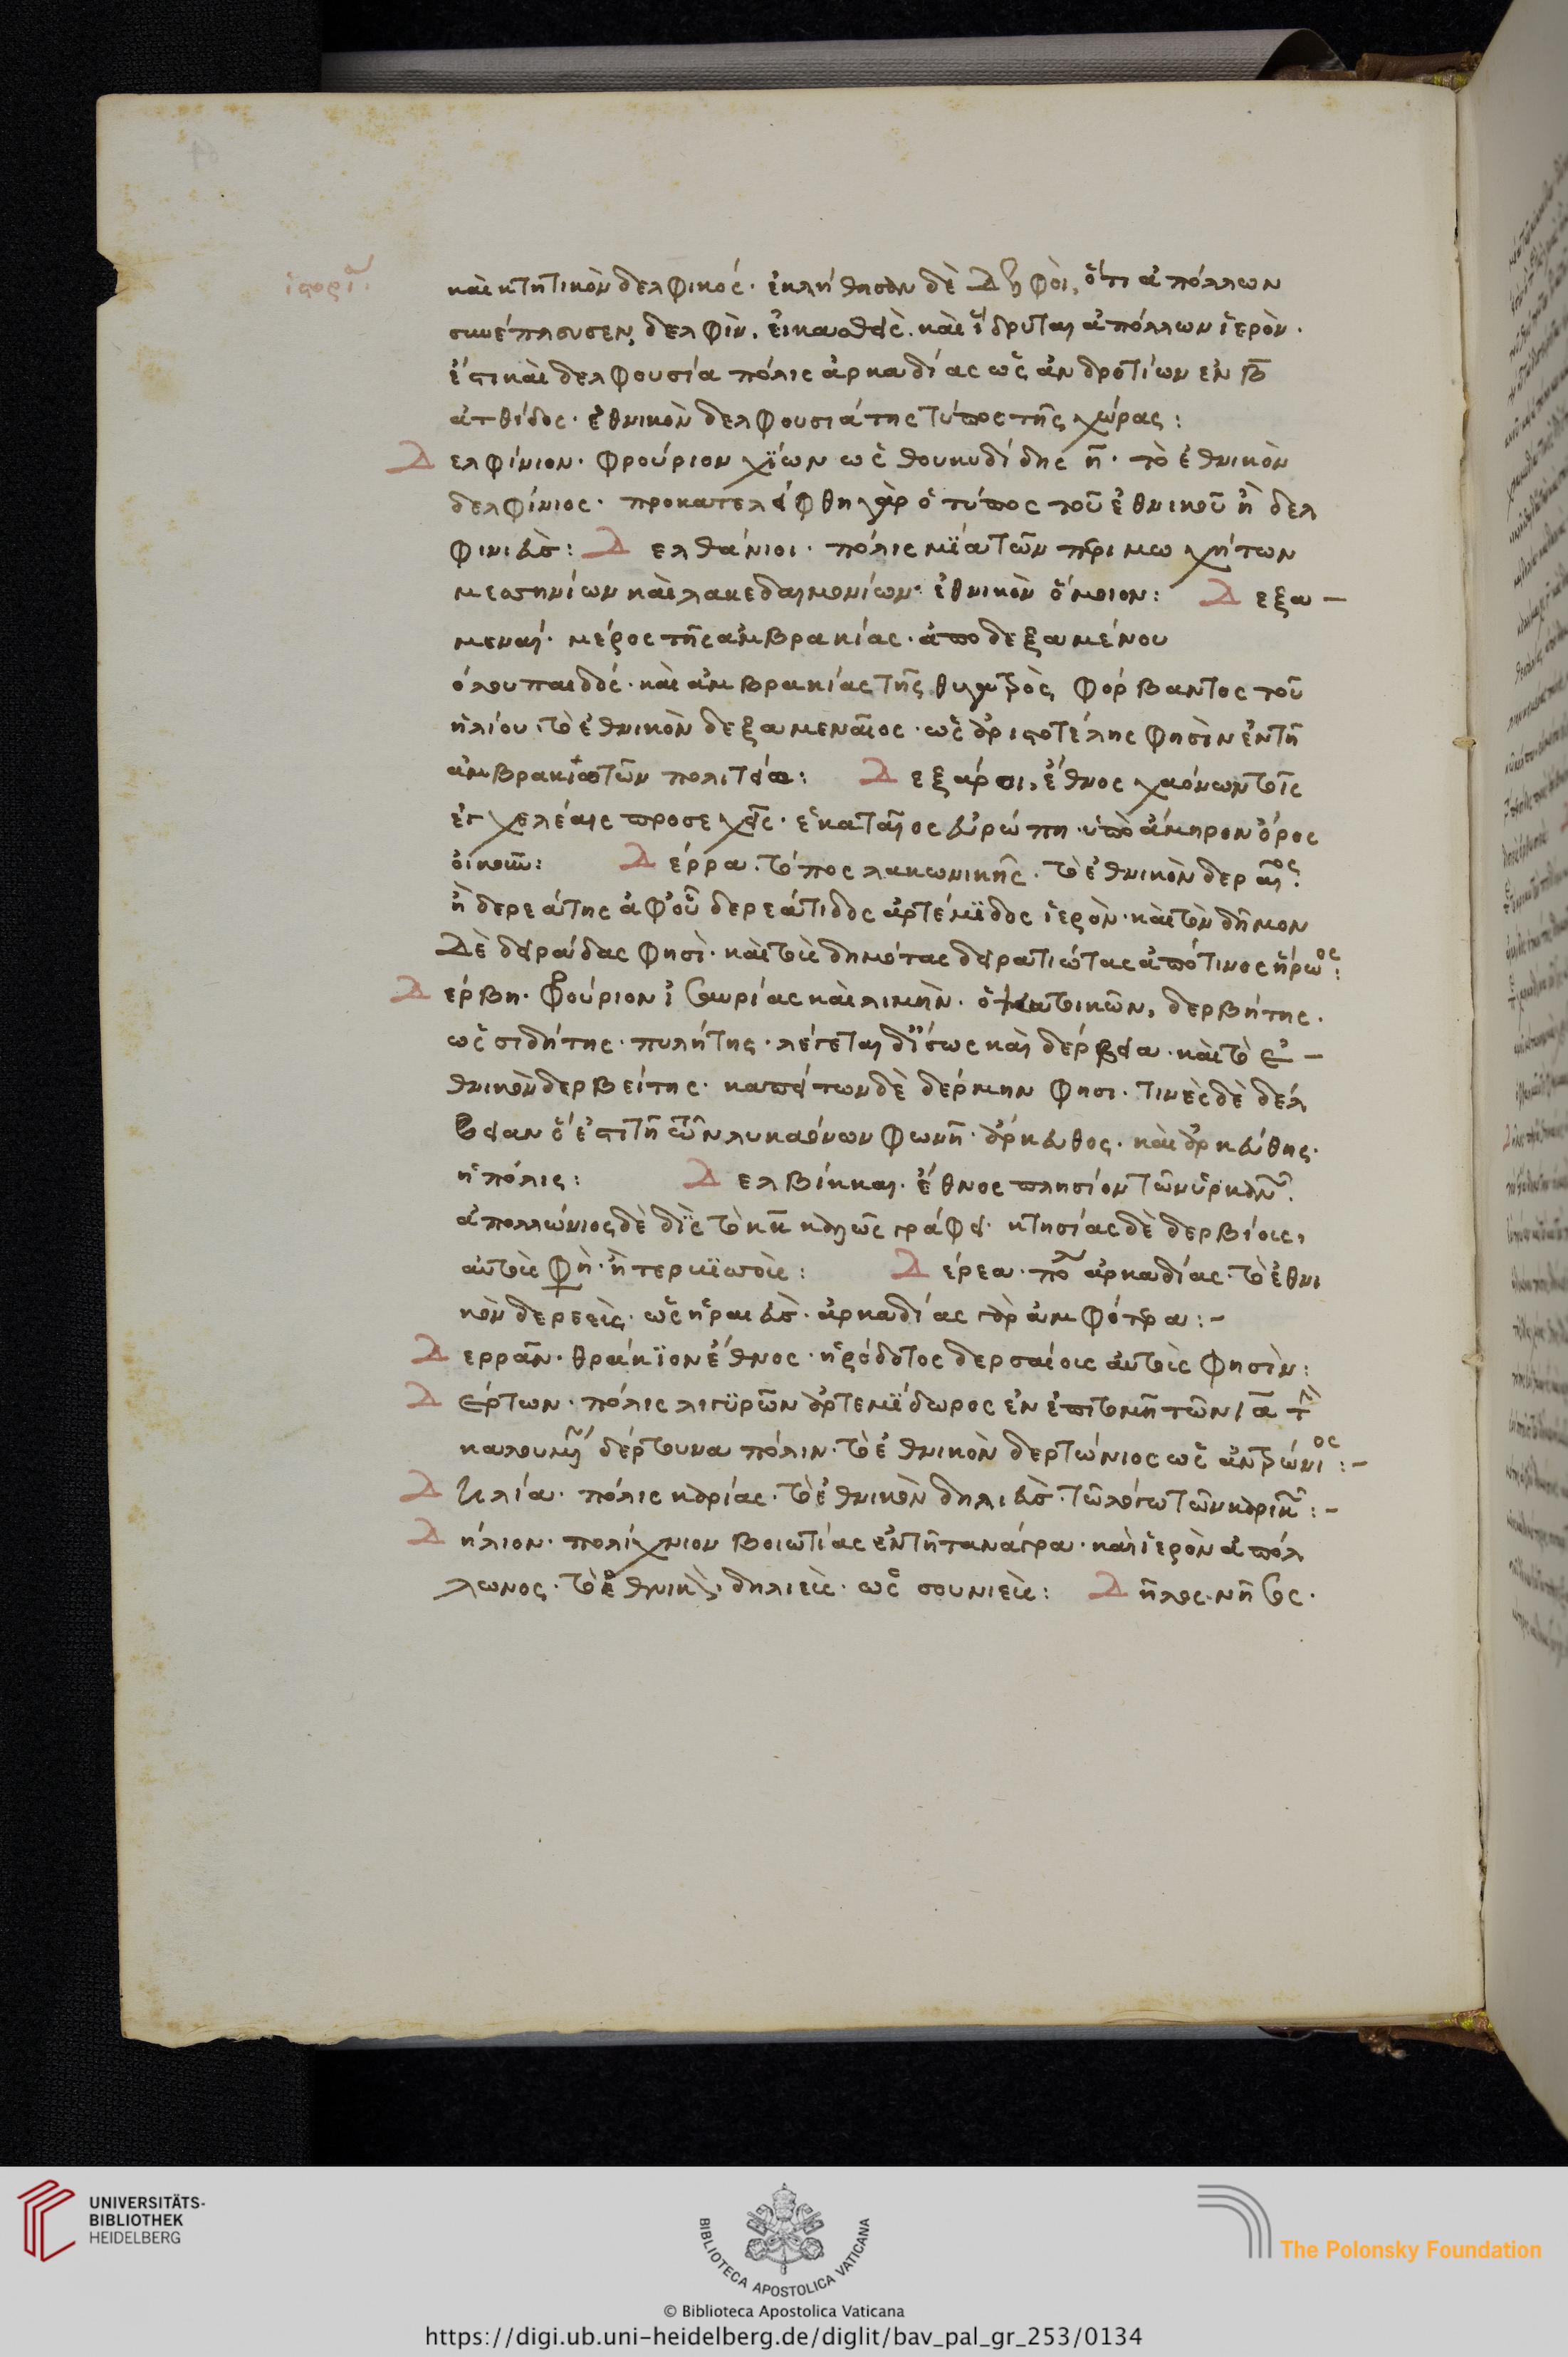 ἱστορία
καὶ κτητικὸν δελφικός· ἐκλήθησαν δὲ Δελφοὶ, ὅτι ἀπόλλων
συνέπλευσεν δελφῖν. εἰκασθεὶς. καὶ ἵδρυται ἀπόλλων ἱερὸν.
ἔστι καὶ δελφουσία πόλις ἀρκαδίας ὡς ἀνδροτίων ἐν
ἀτθίδος· ἐθνικὸν δελφουσιάτης τύπος τῆς χώρας:
Δελφίνιον· φρούριον χίων ὡς θουκυδίδης η̄· τὸ ἐθνικὸν
δελφίνιος· προκατελείφθη γὰρ ὁ τύπος τοῦ ἐθνικοῦ ἢ δελ
φινιεὺς: Δελθάνιοι· πόλις μία τῶν περιμαχήτων
μεσσηνίων καὶ λακεδαιμονίων· ἐθνικὸν ὅμοιον: Δεξα-
μεναί· μέρος τῆς ἀμβρακίας· ἀπὸ δεξαμένου
ὀλου παιδός· καὶ ἀμβρακίας τῆς θυγατρὸς φόρβαντος τοῦ
ἡλίου· τὸ ἐθνικὸν δεξαμεναῖος· ὡς ἀριστοτέλης φησὶν ἐν τῆ
ἀμβρακιωτῶν πολιτεία: Δεξάροι, ἔθνος χαόνων τοῖς
ἐγχελέαις προσεχεῖς· ἑκαταῖος εὐρώπη· ὑπὸ ἄμηρον ὄρος
οἰκοῦν: Δέρρα· τόπος λακωνικῆς· τὸ ἐθνικὸν δεραῖος.
ἢ δερεάτης ἀφ' οὗ δερεάτιδος ἀρτέμιδος ἱερὸν· καὶ τὸν δῆμον
Δὲ δειράδας φησὶ· καὶ τοὺς δημότας δειρατιώτας ἀπό τινος ἥρωος:
Δέρβη· φρούριον ἰσαυρίας καὶ λιμὴν· ὁ οἰκῶν, δερβήτης·
ὡς σιδήτης· πυλήτης· λέγεται δ' ἴσως καὶ δέρβεια· καὶ τὸ ἐ-
θνικὸν δερβείτης· καπείτων δὲ δέρμην φησι· τινὲς δὲ δέλ
βειαν ὅ ἐστι τῆ τῶν λυκαόνων φωνῆ· ἄρκευθος· καὶ ἀρκεύθης·
ἡ πόλις: Δελβίκκαι· ἔθνος πλησίον τῶν ὑρκανῶν.
ἀπολλώνιος δὲ διὰ τὸ κ̄κ̄ καλῶς γράφει· κτησίας δὲ δερβίους,
αὐτούς φη· ἢ τερμισσοὺς: Δέρεα· πόλις ἀρκαδίας· τὸ ἐθνι
κὸν δερεεὺς· ὡς ἡραιεὺς· ἀρκαδίας γὰρ ἀμφότερα:-
Δερρᾶν· θράκιον ἔθνος· ἡρόδοτος δερσαίους αὐτοὺς φησὶν:
Δέρτων· πόλις λιγύρων ἀρτεμίδωρος ἐν ἐπιτομῆ τῶν ιᾱ τὴν
καλουμένην δέρτουνα πόλιν· τὸ ἐθνικὸν δερτώνιος ὡς ἀντρώνιος:-
Δηλία· πόλις καρίας· τὸ ἐθνικὸν δηλιεὺς· τῶ λόγω τῶν καρικῶν:-
Δήλιον· πολίχνιον βοιωτίας ἐν τῆ τανάγρα· καὶ ἱερὸν ἀπόλ
λωνος· τὸ ἐθνικὸν· δηλιεὺς· ὡς σουνιεὺς: Δῆλος· νῆσος·
UNIVERSITÄTS-
BIBLIOTHEK
HEIDELBERG
BIBLIOTECA APOSTOLICA VATICANA
The Polonsky Foundation
© Biblioteca Apostolica Vaticana
https://digi.ub.uni-heidelberg.de/diglit/bav_pal_gr_253/0134